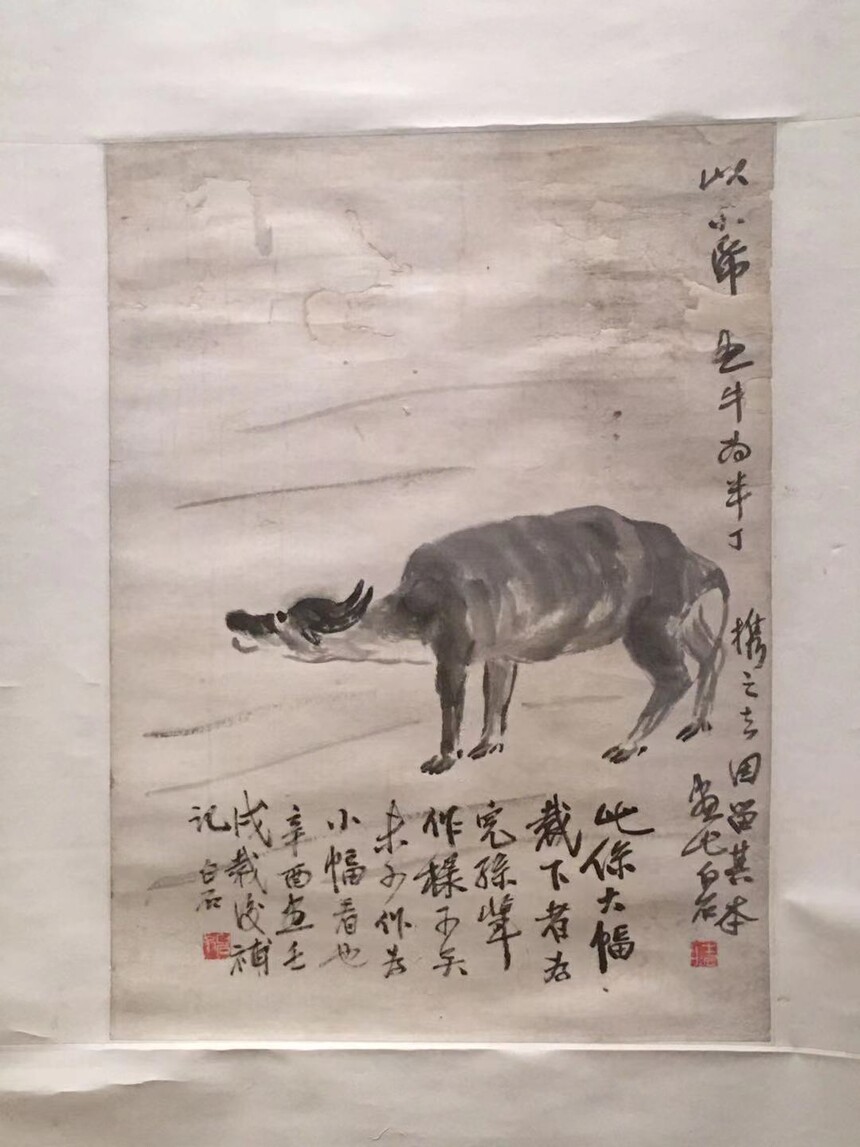 畫牛为半丁携之去因留其本
畫此白石
此係大幅
裁下者为
兒孫輩
作樣子矣
未可作为
小幅看也
辛酉畫壬
戌裁後補
記白石